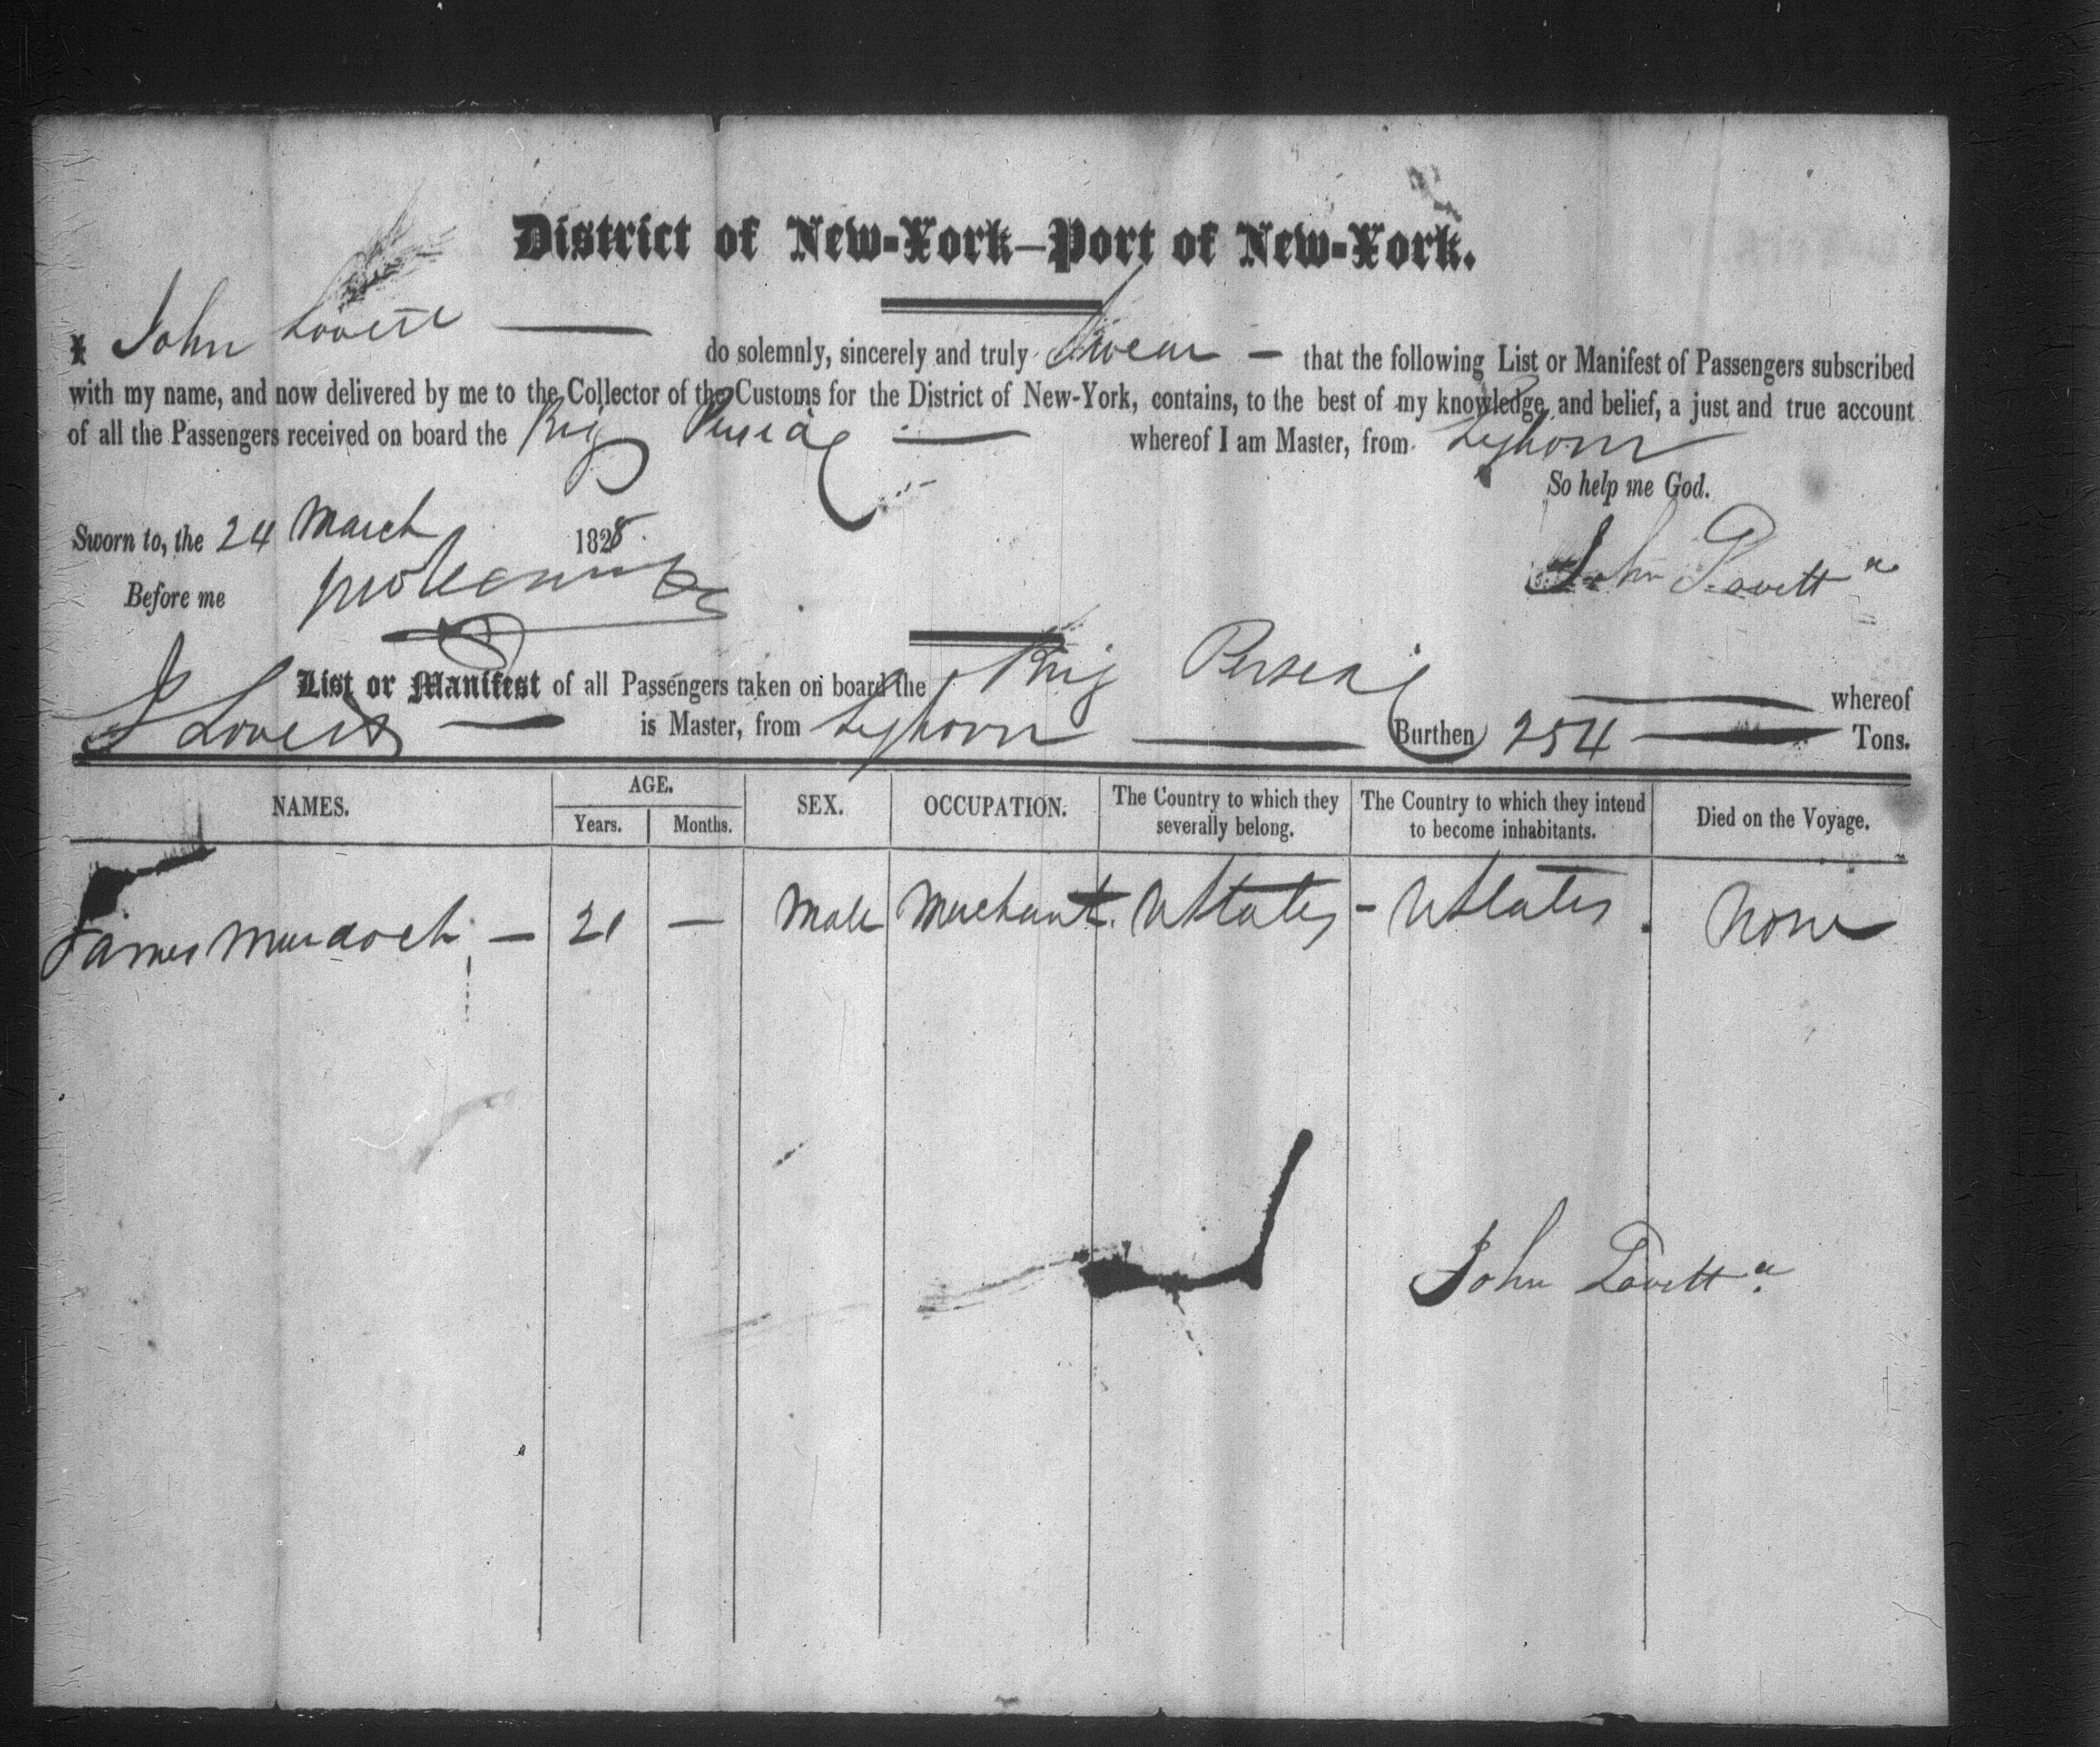 District of New-York—Port of New-York.
I John Lovett — do solemnly, sincerely and truly Swear — that the following List or Manifest of Passengers subscribed
with my name, and now delivered by me to the Collector of the Customs for the District of New-York, contains, to the best of my knowledge and belief, a just and true account
of all the Passengers received on board the Brig Persia — whereof I am Master, from Leghorn
So help me God.
Sworn to, the 24 March 1828
Before me
John Lovett
List or Manifest of all Passengers taken on board the Brig Persia — whereof
J Lovett — is Master, from Leghorn — Burthen 254 — Tons.
NAMES. AGE. SEX. OCCUPATION. The Country to which they severally belong. The Country to which they intend to become inhabitants. Died on the Voyage.
Years. Months.
James Murdock — 21 — Male Merchant. UStates - UStates. None
John Lovett